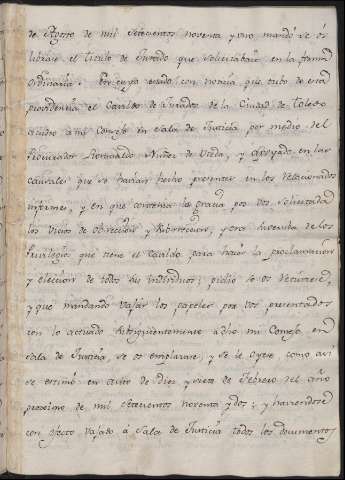 de Agosto de mil setecientos noventa y uno mandó se os
librase el titulo de Jurado que solicitabais en la forma
ordinaria. En cuyo estado con noticia que tubo de esta
providencia el Cavildo de Jurados de la Ciudad de Toledo
acudio a mi Consejo en Sala de Justicia por medio del
Procurador Romualdo Nuñez de Ureda, y apoyado en las
causales que se havian hecho presentes en los relacionados
informes, y en que contenia la gracia por vos solicitada
los vicios de obrecion y subrrecion, y era lesiva de los
Privilegios que tiene el Cavildo para hacer la proclamacion
y eleccion de todos sus individuos; pidio se os
y que mandando vajar los papeles por vos presentados
con lo actuado subsiguientemente a dho mi Consejo en
sala de Justicia, se os emplazase, y se le oyese como asi
se estimó en auto de diez y siete de Febrero del año
proximo de mil setecientos noventa y dos; y haviendose
con efecto vajado à Sala de Justicia todos los documentos